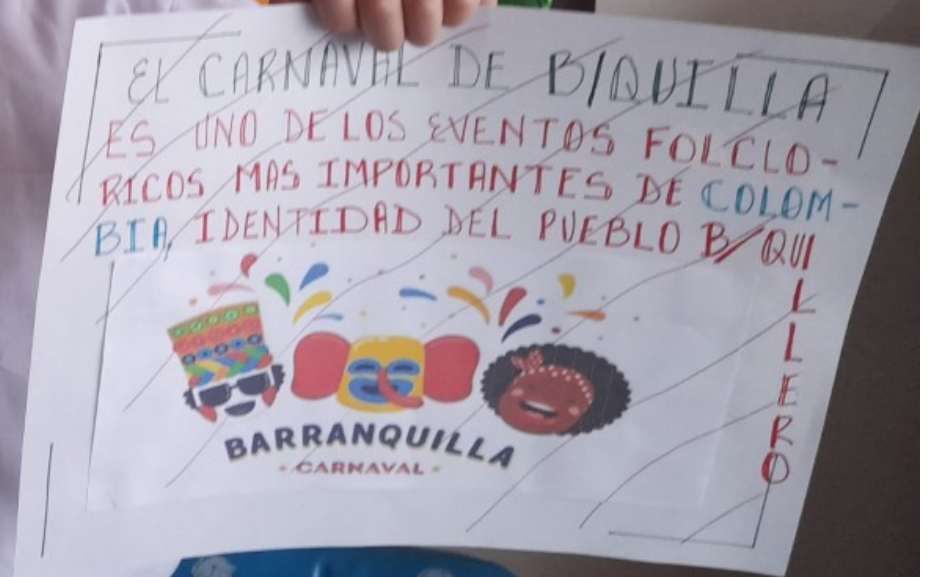 EL CARNAVAL DE B/QUILLA
ES UNO DE LOS EVENTOS FOLCLO-
RICOS MAS IMPORTANTES DE COLOM-
BIA, IDENTIDAD DEL PUEBLO B/QUI
L
L
E
R
O
BARRANQUILLA
- CARNAVAL -